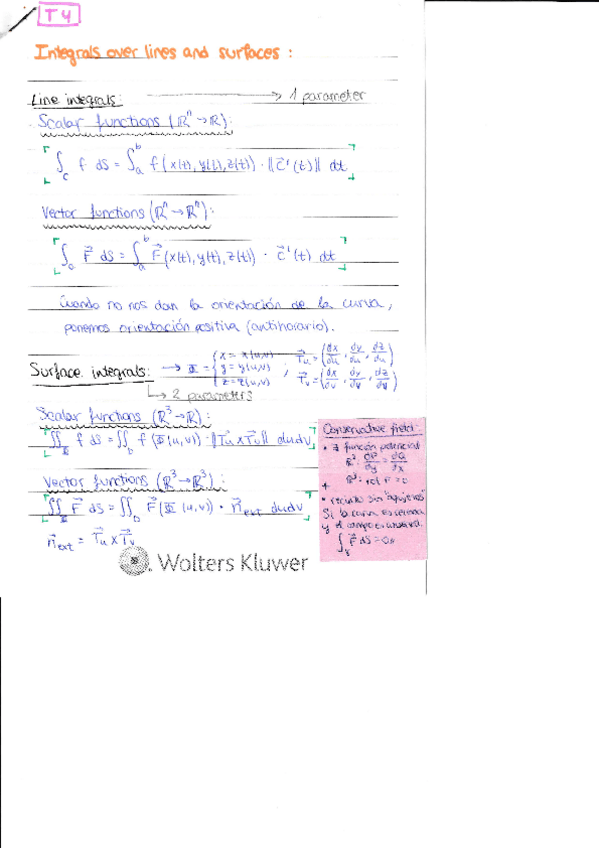 T4
Integrals over lines and surfaces :
Line integrals: → 1 parameter
Scalar functions (ℝⁿ → ℝ):
∫_C f dS = ∫_a^b f(x(t), y(t), z(t)) · ||c⃗'(t)|| dt
Vector functions (ℝⁿ → ℝⁿ):
∫ F⃗ dS = ∫_a^b F⃗(x(t), y(t), z(t)) · c⃗'(t) dt
Cuando no nos dan la orientación de la curva,
ponemos orientación positiva (antihorario).
Surface integrals: → Φ = { x = x(u,v) y = y(u,v) z = z(u,v) ; T⃗u = (dx/du, dy/du, dz/du)
T⃗v = (dx/dv, dy/dv, dz/dv)
↳ 2 parameters
Scalar functions (ℝ³ → ℝ):
∬_Φ f dS = ∬_D f(Φ(u,v)) · ||T⃗u x T⃗v|| dudv
Vector functions (ℝ³ → ℝ³):
∬_Φ F⃗ dS = ∬_D F⃗(Φ(u,v)) · n⃗ext dudv
n⃗ext = T⃗u x T⃗v
Conservative field
• ∃ función potencial
ℝ²: dP/dy = dQ/dx
ℝ³: rot F = 0
+
• recinto sin "agujeros"
Si la curva es cerrada
y el campo conservativo
∫_γ F⃗ dS = 0
Wolters Kluwer